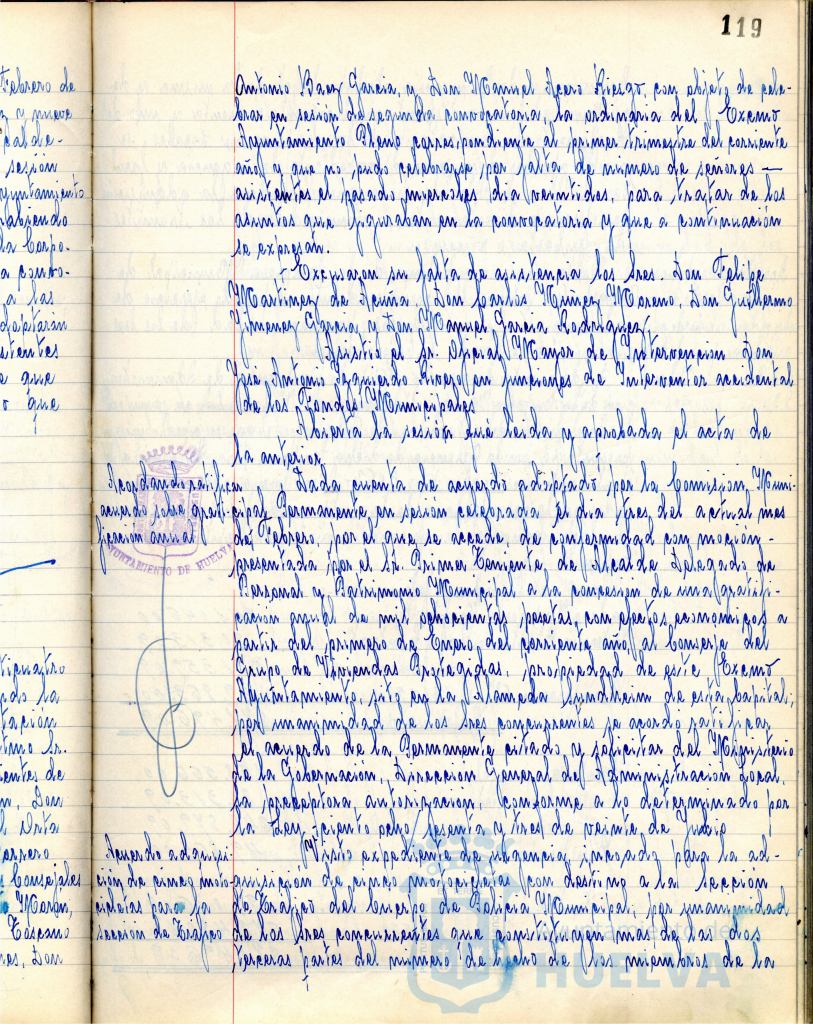 119
Antonio Baez Garcia, y Don Manuel Acero Riesgo, con objeto de cele-
brar en sesión de segunda convocatoria, la ordinaria del Excmo
Ayuntamiento Pleno correspondiente al primer trimestre del corriente
año, y que no pudo celebrarse por falta de número de señores —
asistentes el pasado miercoles dia veintidos, para tratar de los
asuntos que figuraban en la convocatoria y que a continuación
se expresan.
Excusaron su falta de asistencia los Sres. Don Felipe
Martinez de Acuña, Don Carlos Núñez Moreno, Don Guillermo
Jimenez Garcia, y Don Manuel Garcia Rodriguez.
Asistió el Sr. Oficial Mayor de Intervencion Don
José Antonio Izquierdo Rivero en funciones de Interventor accidental
de los Fondos Municipales
Abierta la sesión fue leida y aprobada el acta de
la anterior.
Acordando ratificar
acuerdo sobre grati-
ficacion anual
Dada cuenta de acuerdo adoptado por la Comision Muni-
cipal Permanente en sesión celebrada el dia tres del actual mes
de Febrero, por el que se accede de conformidad con moción-
presentada por el Sr. Primer Teniente de Alcalde Delegado de
Personal y Patrimonio Municipal a la concesion de una gratifi-
cacion anual de mil ochocientas pesetas, con efectos economicos a
partir del primero de Enero del corriente año, al Conserje del
Grupo de Viviendas Protegidas, propiedad de este Excmo
Ayuntamiento, sito en la Alameda Sundheim de esta Capital;
por unanimidad de los Sres concurrentes se acordo ratificar
el acuerdo de la Permanente citado, y solicitar del Ministerio
de la Gobernación, Direccion General de Administración Local,
la preceptora autorizacion, conforme a lo determinado por
la Ley ciento ocho/sesenta y tres de veinte de Julio
Acuerdo adquisi-
ción de cinco moto-
cicletas para la
sección de Tráfico
Visto expediente de urgencia incoado para la ad-
quisición de cinco motocicletas con destino a la Sección
de Tráfico del Cuerpo de Policia Municipal, por unanimidad
de los Sres concurrentes que constituyen mas de las dos
terceras partes del numero de hecho de los miembros de la
AYUNTAMIENTO DE HUELVA
Ayuntamiento de
HUELVA